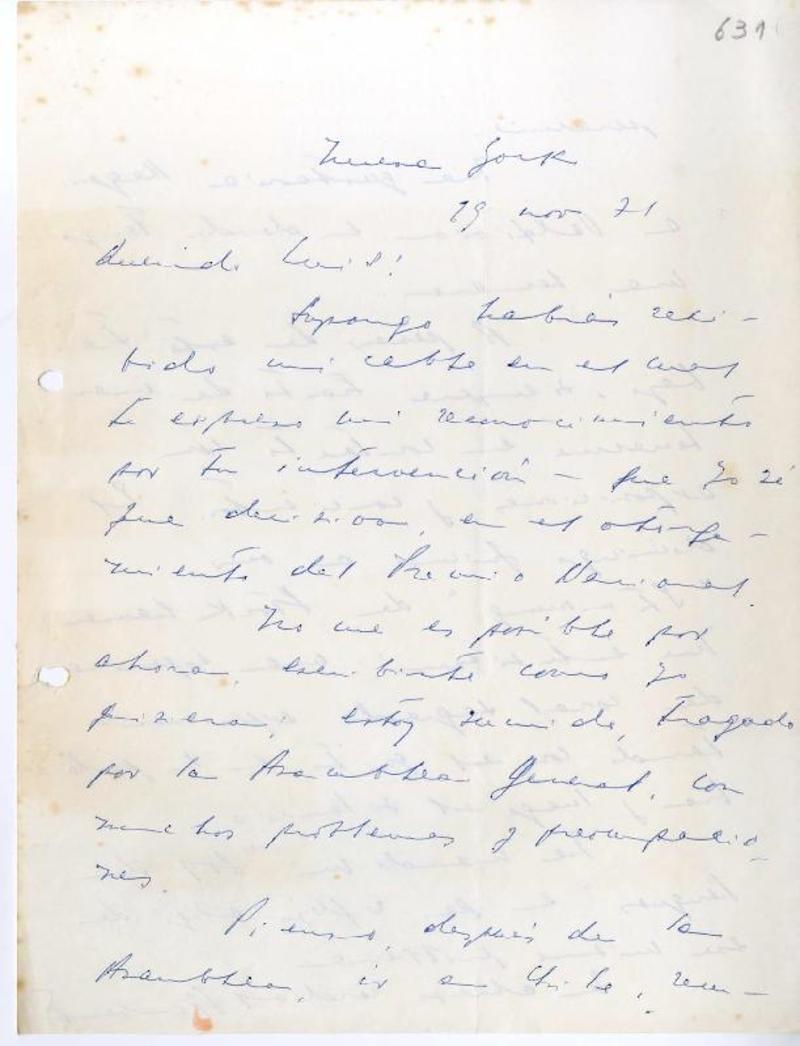 631
Nueva York
19 nov 71
Querido Luis!
Supongo habrás reci-
bido mi cable en el cual
te expreso mi reconocimiento
por tu intervención – que yo sé
fue decisiva, en el otorga-
miento del Premio Nacional.
No me es posible por
ahora, escribirte como yo
quisiera; estoy sumido, tragado
por la Asamblea General, con
muchos problemas y preocupacio-
nes.
Pienso, después de la
Asamblea, ir a Chile,